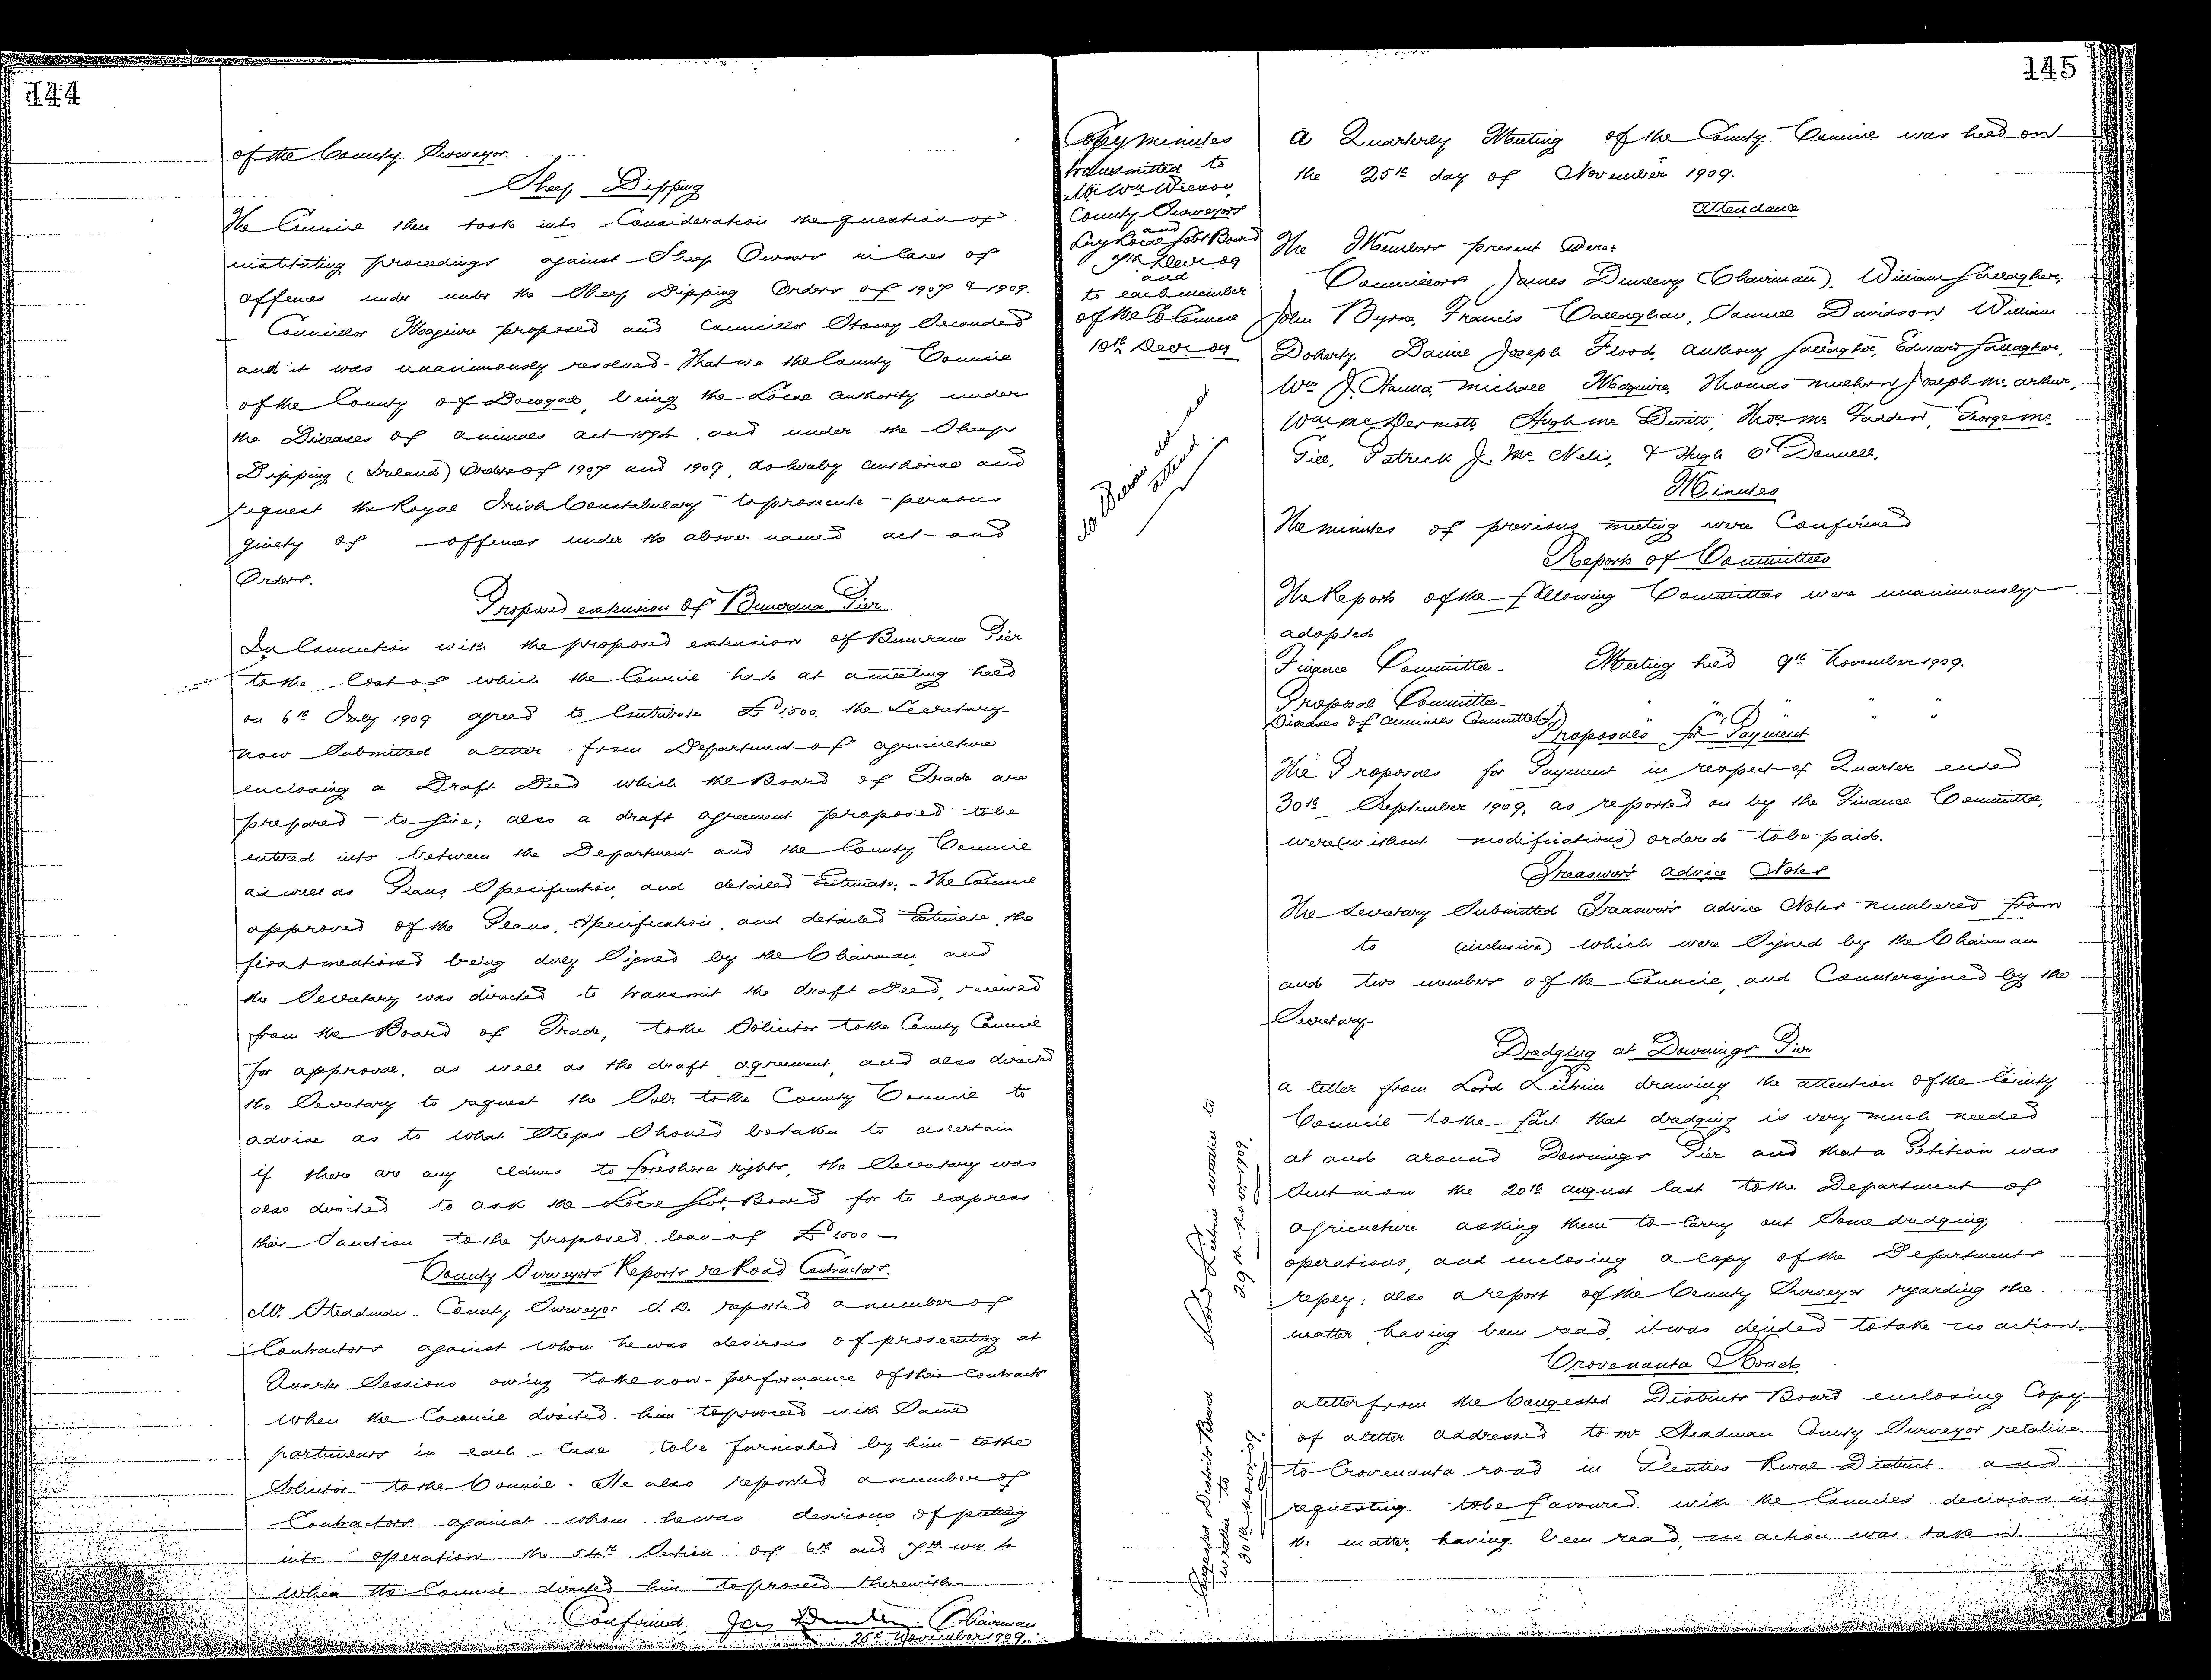 144
of the County Surveyor.
Sheep Dipping
The Council then took into Consideration the question of
instituting proceedings against Sheep Owners in Cases of
offences under under the Sheep Dipping Orders of 1907 & 1909.
Councillor Maguire proposed and Councillor Seconded
and it was unanimously resolved - That we the County Council
of the County of Donegal, being the Local Authority under
the Diseases of Animals Act 1894 and under the Sheep
Dipping (Ireland) Orders of 1907 and 1909, do hereby authorise and
request the Royal Irish Constabulary to prosecute persons
guilty of offences under the above named act and
Orders.
Proposed extension of Buncrana Pier
In Connection with the proposed extension of Buncrana Pier
to the Cost of which the Council had at a meeting held
on 6th July 1909 agreed to Contribute £1500. the Secretary
now Submitted a letter from Department of Agriculture
enclosing a Draft Deed which the Board of Trade are
prepared to give; also a draft agreement proposed to be
entered into between the Department and the County Council
as well as Plans, Specification, and detailed Estimate. - The Council
approved of the Plans, Specification, and detailed Estimate, the
first mentioned being duly Signed by the Chairman, and
the Secretary was directed to transmit the draft Deed, received
from the Board of Trade, to the Solicitor to the County Council
for approval, as well as the draft agreement, and also directed
the Secretary to request the Solr. to the County Council to
advise as to what Steps Should be taken to ascertain
if there are any claims to foreshore rights, the Secretary was
also directed to ask the Local Govt. Board for to express
their Sanction to the proposed loan of £1500 -
County Surveyors Reports re Road Contractors.
Mr. Steadman County Surveyor S. D. reported a number of
Contractors against whom he was desirous of prosecuting at
Quarter Sessions owing to the non-performance of their Contracts
When the Council directed him to proceed with Same
particulars in each Case to be furnished by him to the
Solicitor to the Council. He also reported a number of
Contractors against whom he was desirous of putting
into operation the 54th Section of 6th and 7th Wm 4
When the Council directed him to proceed therewith -
Confirmed, Jas Dunlevy Chairman
25th November 1909.
145
Copy minutes
transmitted to
Mr Wm Wilson
County Surveyors
and
Local Govt Board
7th Decr. 09
and
to each member
of the Co. Council
10th Decr. 09
Mr did not
attend.
A Quarterly Meeting of the County Council was held on
the 25th day of November 1909.
Attendance
The Members present Were:
Councillors James Dunlevy (Chairman), William Gallagher,
John Byrne, Francis Callaghan, Samuel Davidson, William
Doherty, Daniel Joseph Flood, Anthony Gallagher, Edward Gallagher,
Wm J. Hanna, Michael Maguire, Thomas Joseph Mc Arthur,
Wm Mc Dermott, Hugh Mc Devitt, Thos. Mc Fadden, George Mc
Gill, Patrick J. Mc Nelis, & Hugh O'Donnell.
Minutes
The minutes of previous meeting were Confirmed
Reports of Committees
The Reports of the following Committees were unanimously
adopted
Finance Committee - Meeting held 9th November 1909.
Proposal Committee - " " " "
Diseases of Animals Committee " " " "
Proposals for Payment
The Proposals for Payment in respect of Quarter ended
30th September 1909, as reported on by the Finance Committee,
were (without modifications) ordered to be paid.
Treasurer's Advice Notes
The Secretary Submitted Treasurer's Advice Notes numbered from
to (inclusive) which were Signed by the Chairman
and two members of the Council, and Countersigned by the
Secretary -
Dredging at Downings Pier
Lord Leitrim written to
29th Novr. 1909.
A letter from Lord Leitrim drawing the attention of the County
Council to the fact that dredging is very much needed
at and around Downings Pier and that a Petition was
Sent in on the 20th August last to the Department of
Agriculture asking them to Carry out Some dredging
operations, and enclosing a Copy of the Departments
reply; also a report of the County Surveyor regarding the
matter, having been read, it was decided to take no action.
Crovenanta Road
Congested Districts Board
written to
30th Novr. 09.
A letter from the Congested Districts Board enclosing Copy
of a letter addressed to Mr Steadman County Surveyor relative
to Crovenanta road in Glenties Rural District and
requesting to be favoured with the Councils decision in
the matter, having been read, no action was taken.